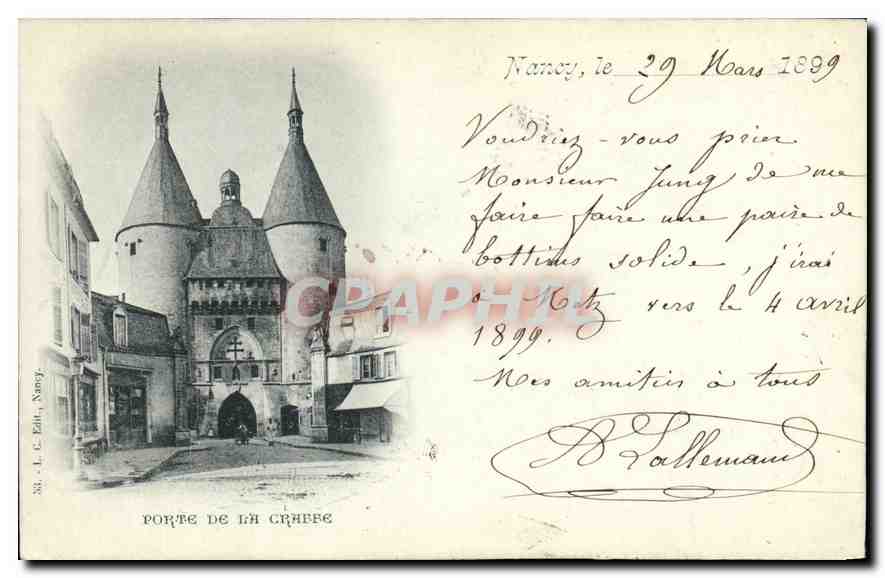 Nancy, le 29 Mars 1899
Voudriez-vous prier
Monsieur Jung de me
faire faire une paire de
bottines solide, j'irai
à Metz vers le 4 avril
1899.
Mes amitiés à tous
Lallemand
CARTAPHIL
33. - L. C. Edit., Nancy.
PORTE DE LA CRAFFE